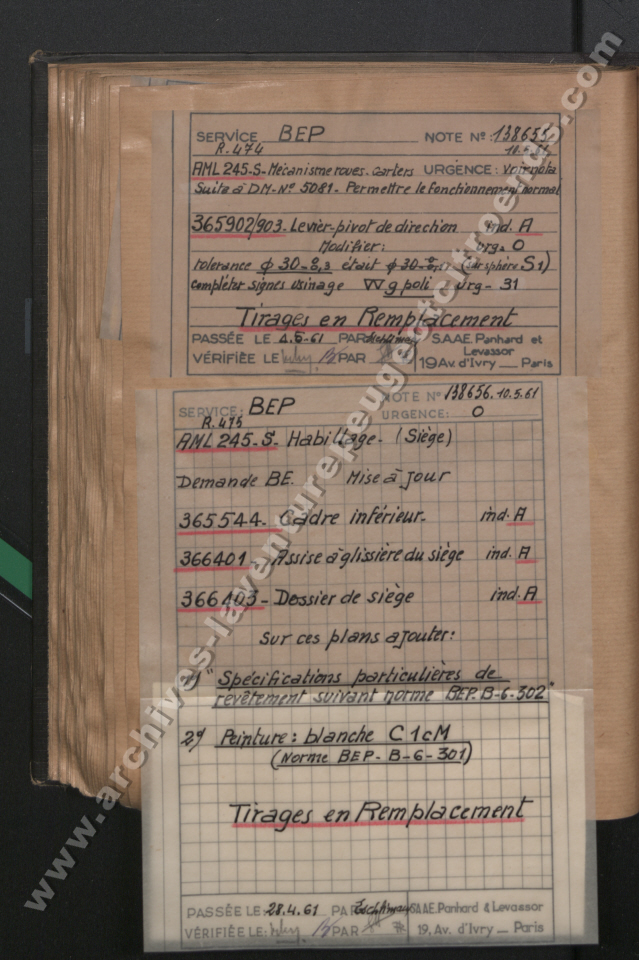 SERVICE BEP NOTE Nº: 138655
R.474 10.5.61
AML 245-S- Mécanisme roues. Carters URGENCE: Voir nota
Suite à DM-Nº 5081- Permettre le fonctionnement normal
365902/903- Levier-pivot de direction ind. A
Modifier: urg. 0
tolérance ϕ 30 était ϕ 30 (sur sphère S1)
compléter signes usinage ▽▽ g poli - urg- 31
Tirages en Remplacement
PASSÉE LE 4.5-61 PAR S.A.A.E. Panhard et
Levassor
VÉRIFIÉE LE PAR 19 Av. d'Ivry — Paris
SERVICE: BEP NOTE Nº 138656. 10.5.61
R.475 URGENCE: 0
AML 245-S- Habillage- (Siège)
Demande BE. Mise à jour
365544- Cadre inférieur- ind. A
366401- Assise à glissière du siège ind. A
366403- Dossier de siège ind. A
Sur ces plans ajouter:
1) "Spécifications particulières de
revêtement suivant norme BEP. B-6-302"
2) Peinture: blanche C1cM
(Norme BEP- B-6-301)
Tirages en Remplacement
PASSÉE LE: 28.4.61 PAR S.A.A.E. Panhard & Levassor
VÉRIFIÉE LE: PAR 19, Av. d'Ivry — Paris
www.archives-laventurepeugeotcitroends.com